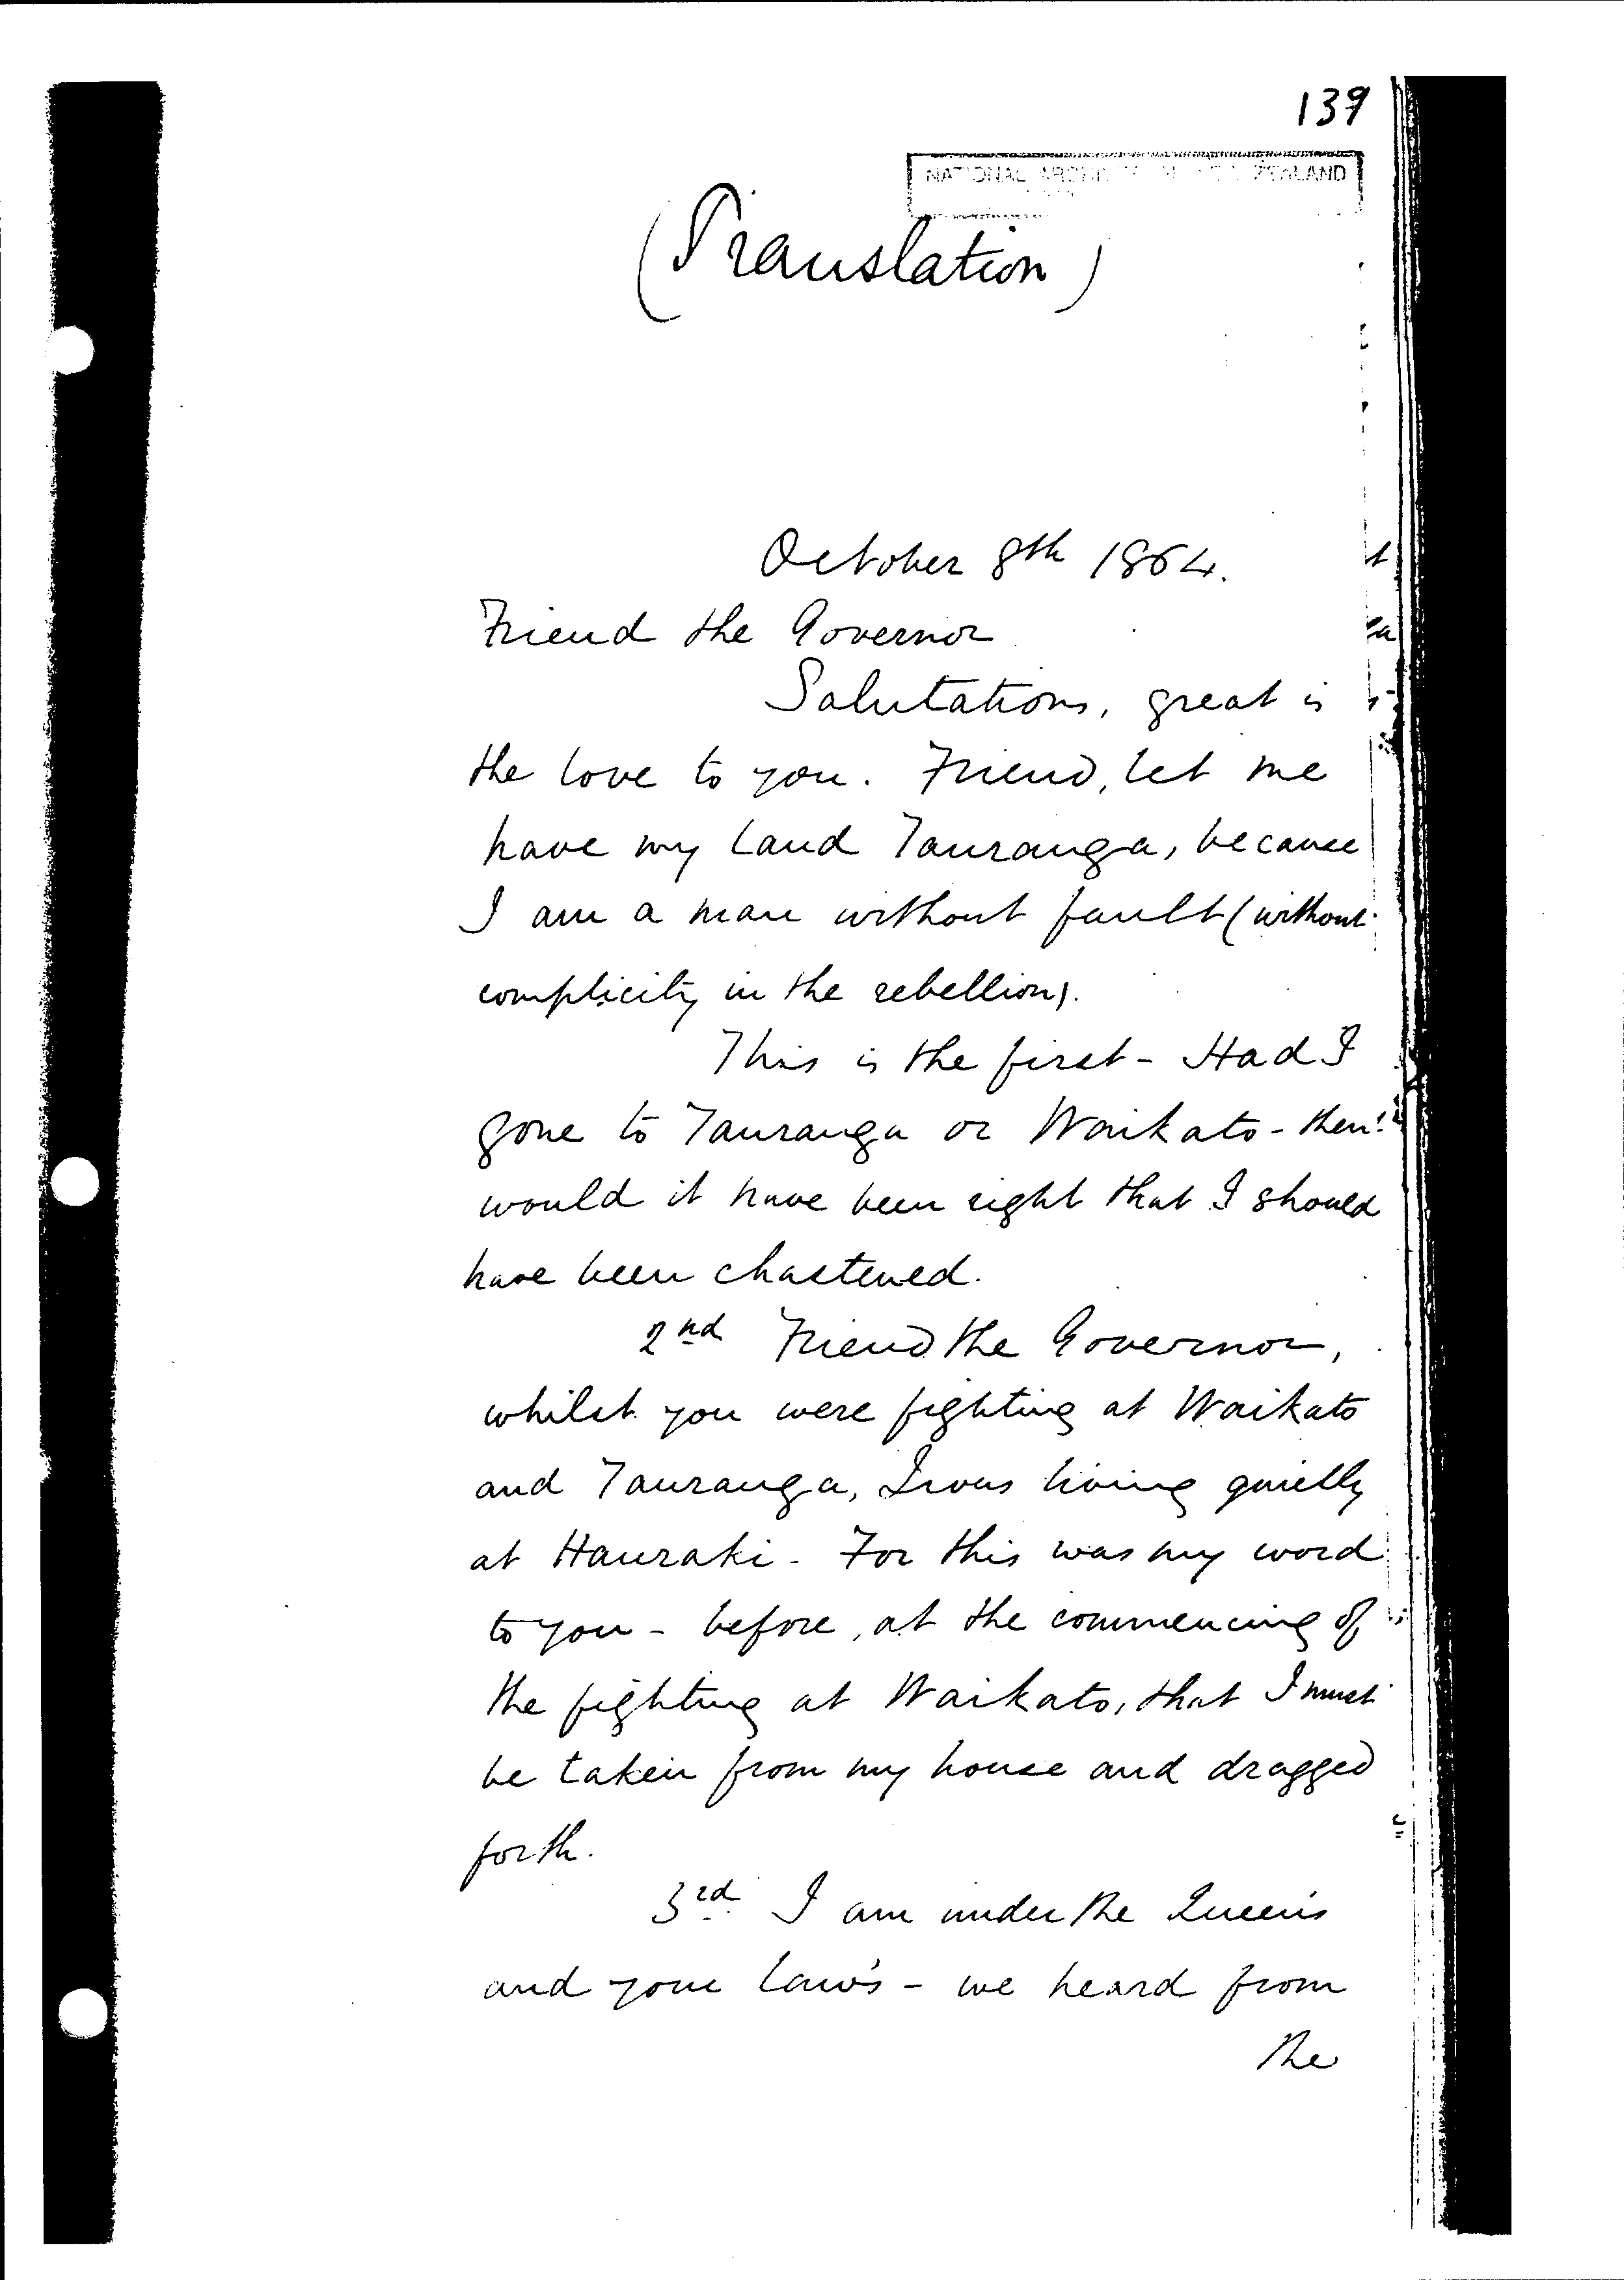 139
NATIONAL ZEALAND
(Translation)
October 8th 1864.
Friend the Governor
Salutations, great is
the love to you. Friend, let me
have my land Tauranga, because
I am a man without fault (without
complicity in the rebellion).
This is the first - Had I
gone to Tauranga or Waikato - then
would it have been right that I should
have been chastened.
2nd Friend the Governor,
whilst you were fighting at Waikato
and Tauranga, I was living quietly
at Hauraki - For this was my word
to you - before, at the commencing of
the fighting at Waikato, that I must
be taken from my house and dragged
forth.
3rd. I am under the Queen's
and your law's - we heard from
the